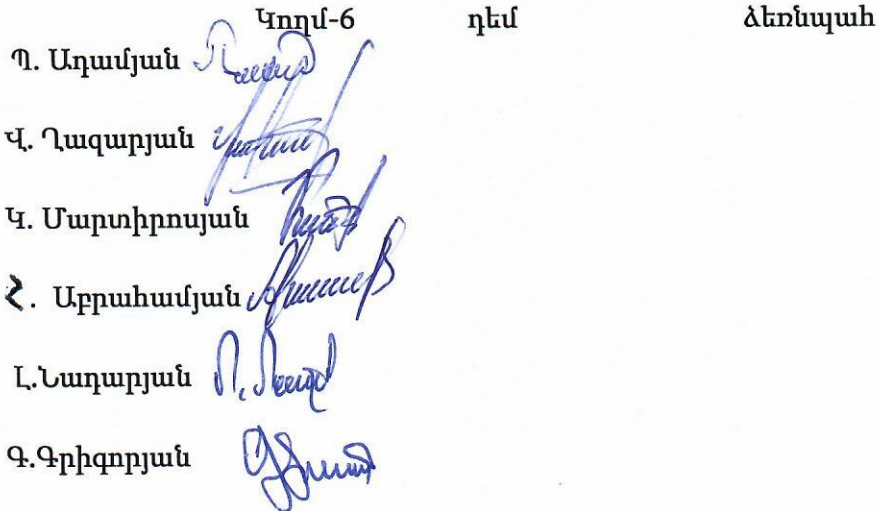 Կողմ-6 դեմ ձեռնպահ
Պ. Ադամյան
Վ. Ղազարյան
Կ. Մարտիրոսյան
Հ. Աբրահամյան
Լ.Նադարյան
Գ.Գրիգորյան